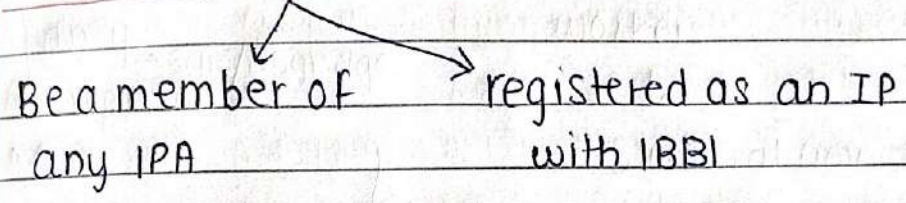 Be a member of
any IPA
registered as an IP
with IBBI